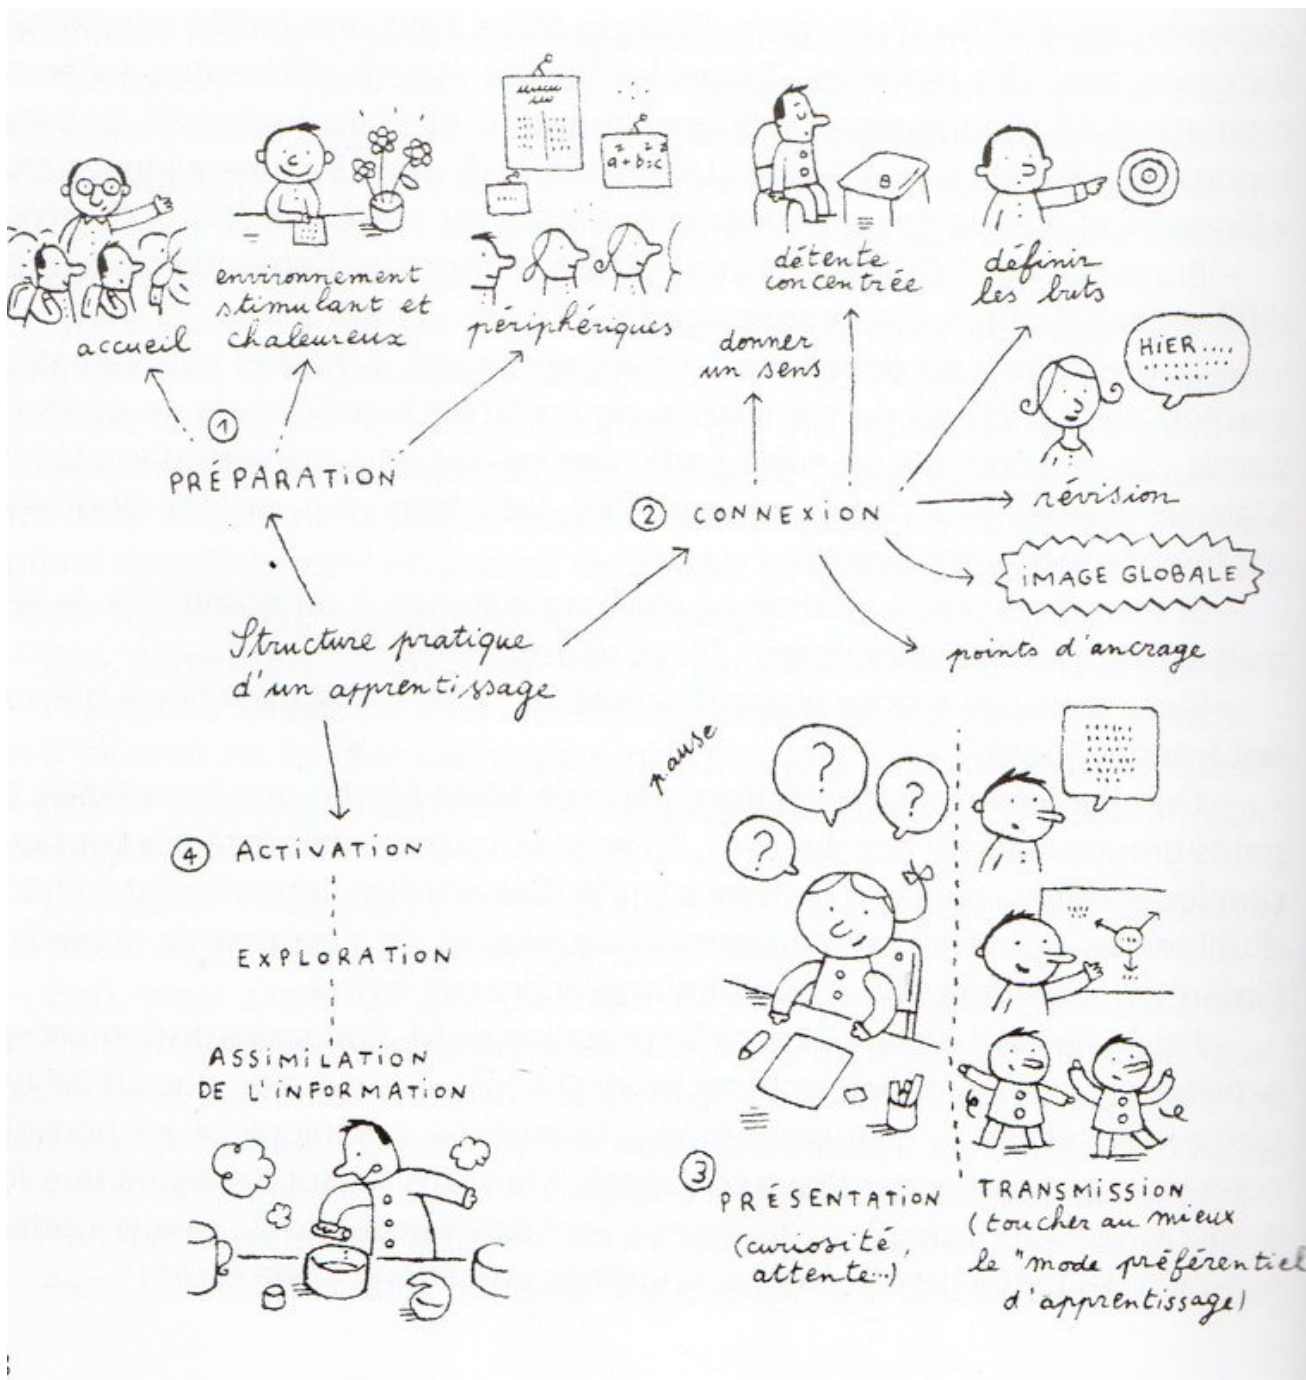 a+b=c
B
accueil
environnement
stimulant et
chaleureux
périphériques
①
PRÉPARATION
détente
concentrée
définir
les buts
donner
un sens
HIER....
② CONNEXION
révision
IMAGE GLOBALE
points d'ancrage
Structure pratique
d'un apprentissage
pause
?
?
?
④ ACTIVATION
EXPLORATION
ASSIMILATION
DE L'INFORMATION
③
PRÉSENTATION
(curiosité,
attente...)
TRANSMISSION
(toucher au mieux
le "mode préférentiel
d'apprentissage)